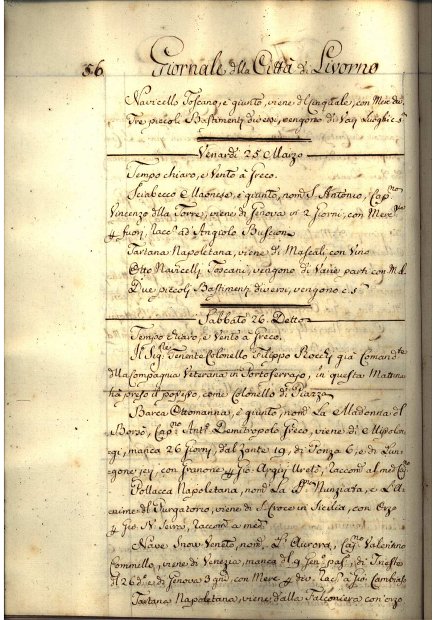 56 Giornale della Città di Livorno
Navicello Toscano, è giunto, viene di con Merc. div.
Tre piccoli Bastimenti diversi, vengono di Varj luoghi c. s.
Venardì 25 Marzo
Tempo chiaro, e Vento à Greco.
Sciabecco è giunto, nomº S. Antonio, Capno
Vincenzo della Torre, viene di Genova in 2 Giorni, con Merc.
fuori, Racc. ad Angiolo
Tartana Napoletana, viene di Mascali con Vino
Otto Navicelli Toscani, vengono di Varie parti con M. d.
Due piccoli Bastimenti diversi, vengono c. s.
Sabbato 26. Detto
Tempo chiaro, e Vento à Greco.
Il Sigre Tenente Colonello Filippo già Comandte
della Compagnia Veterana in Portoferrajo, in questa Mattina
hà preso il possesso, come Colonello di Piazza
Barca Ottomanna, è giunto, nomª La Madonna del
Capno Antº Demitropolo Greco, viene di
manca 26 Giorni, dal Zante 19, di Ponza 6, e di Lun-
gone con Granone Raccom. al med.
Pollacca Napoletana, nomª La SS. Nunziata, e L'A-
nime del Purgatorio, viene di S. Croce in Sicilia, con Orzo
Raccom. a med.
Nave Snow Veneto, nomª L'Aurora, Capno Valentino
Comminllo, viene di Venezia, manca dal 4 Geno. pas. di Trieste
il 26 do e di Genova 3 gni, con Merc. div. Racc. a Gio.
Tartana Napoletana, viene dalla Falconiera con orzo